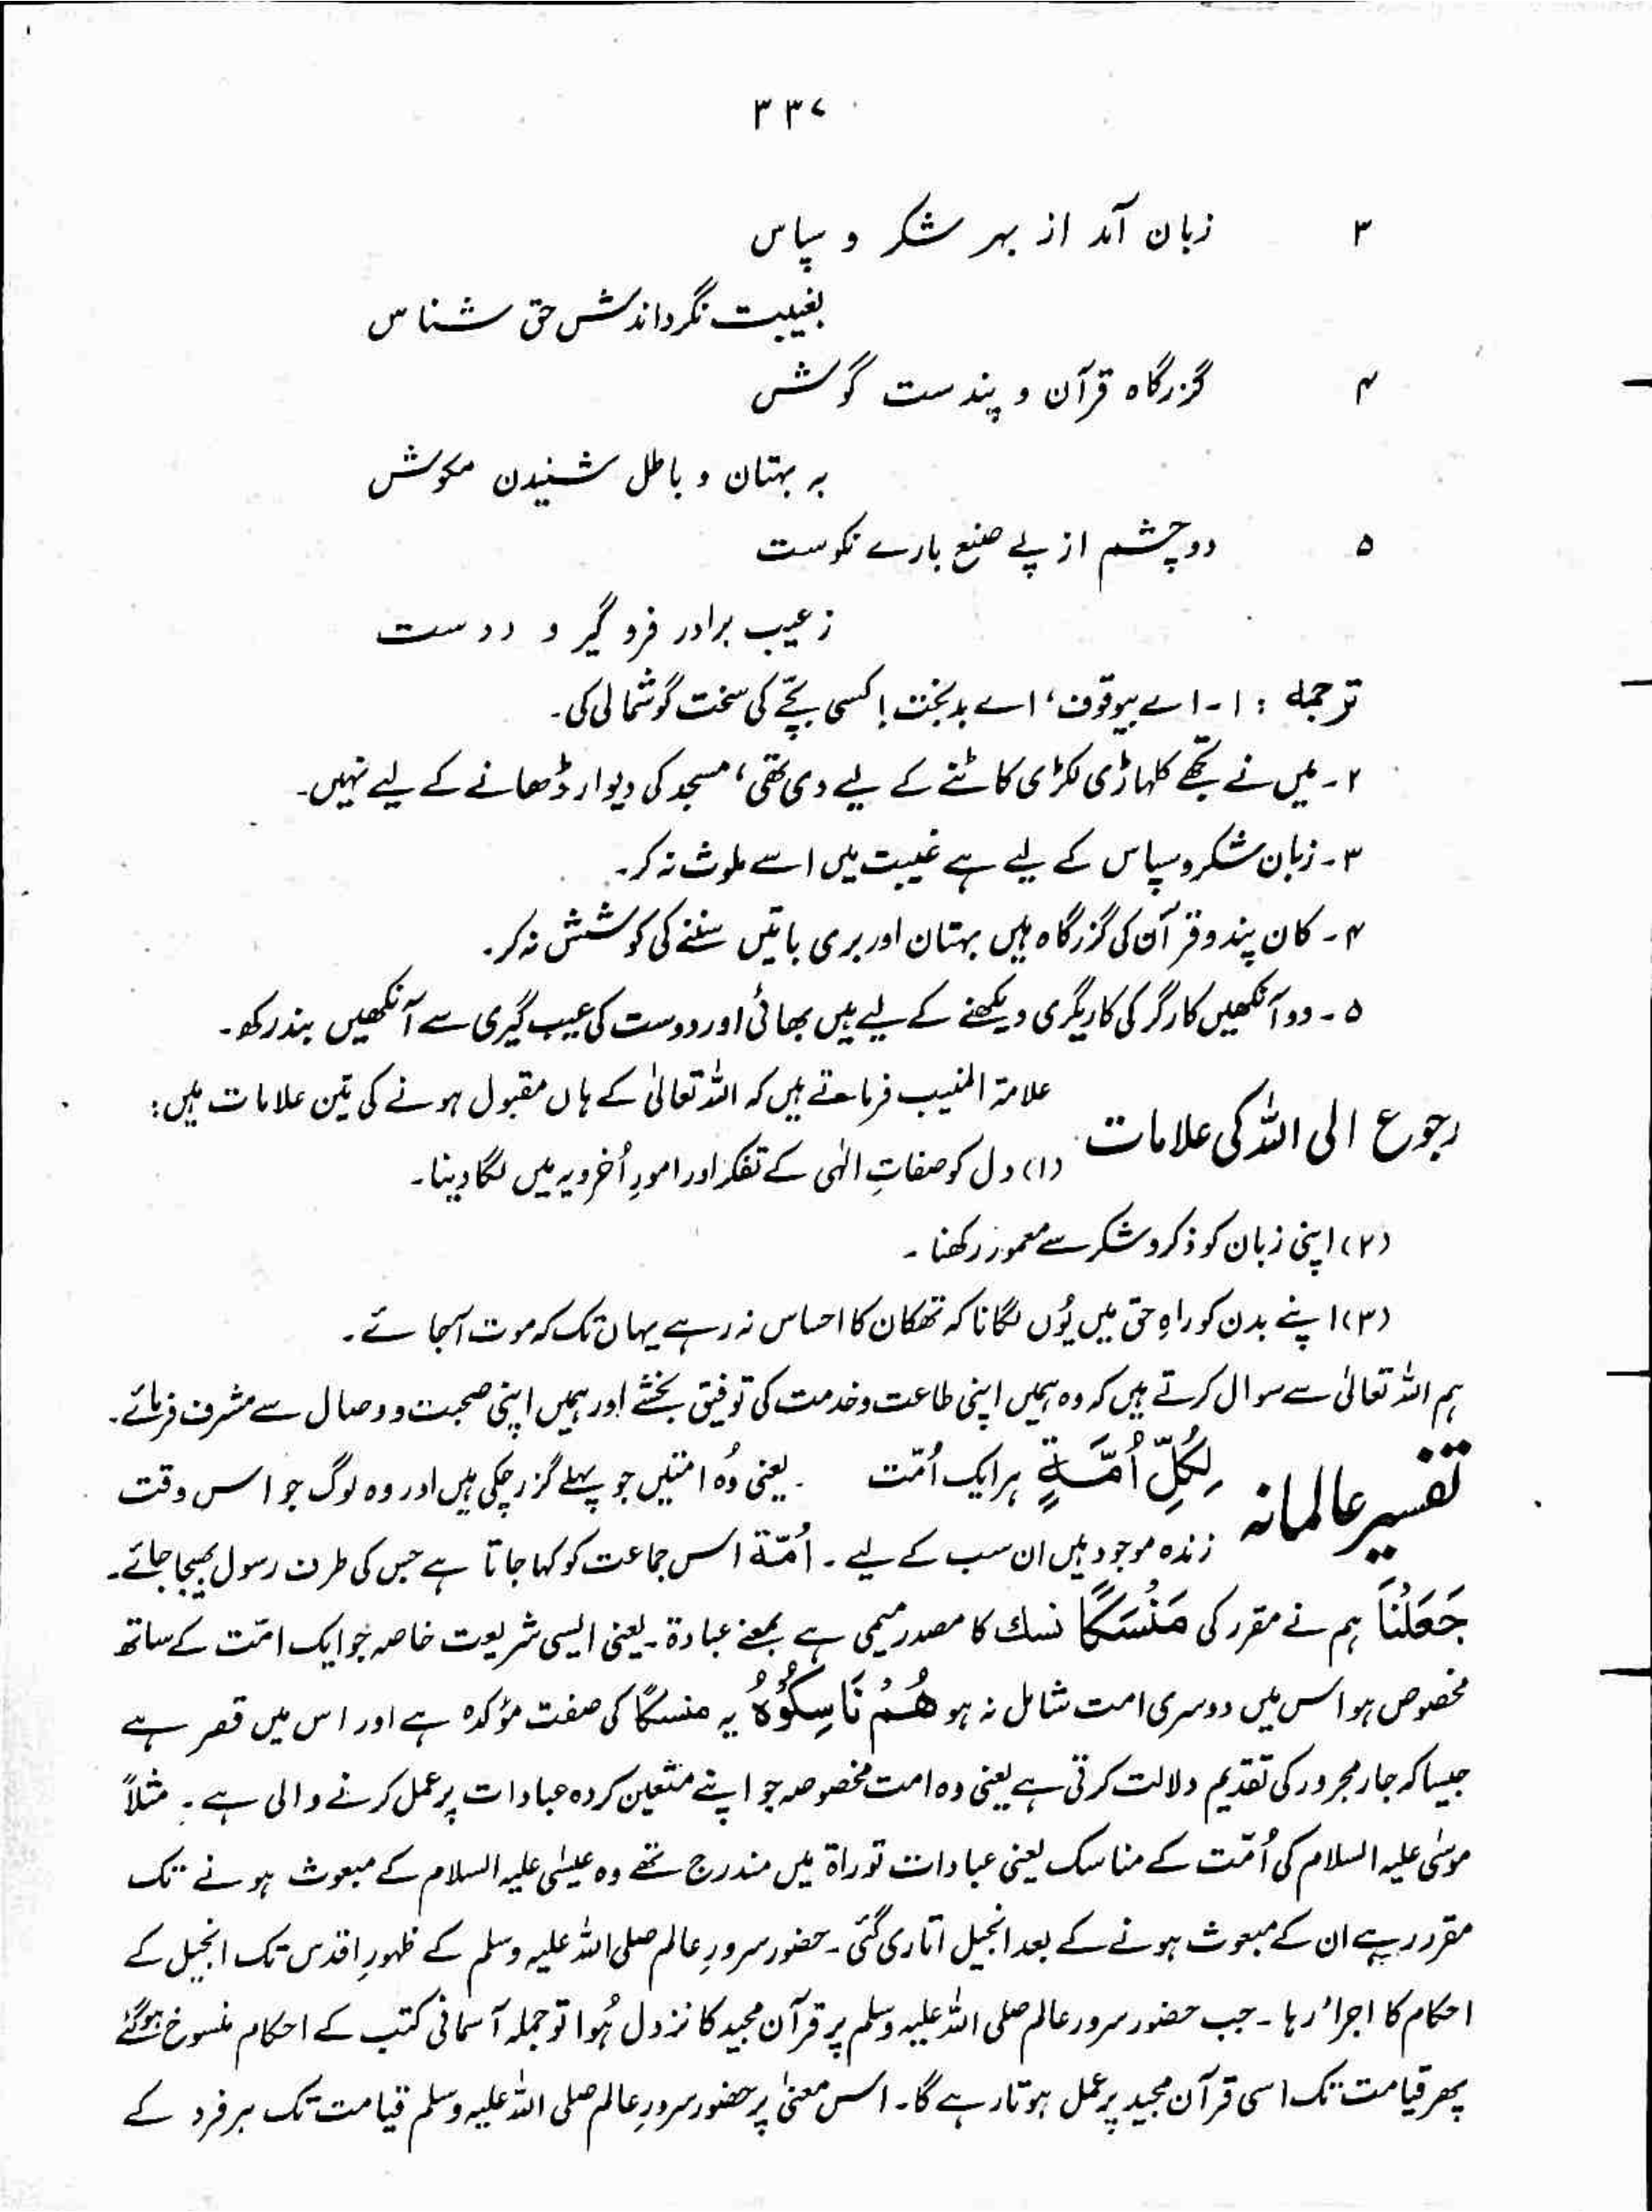 ۳۳۷
۳ زبان آمد از بہر شکر و سپاس
بغیبت نگرداندش حق شناس
۴ گزرگاہ قرآن و پندست گوش
بہ بہتان و باطل شنیدن مکوش
۵ دو چشم از پے صنع بارے نکوست
ز عیب برادر فرو گیر و دوست
ترجمہ : ۱- اے بیوقوف، اے بدبخت! کسی بچّے کی سخت گوشمالی کی۔
۲- میں نے تجھے کلہاڑی لکڑی کاٹنے کے لیے دی تھی، مسجد کی دیوار ڈھانے کے لیے نہیں۔
۳- زبان شکر و سپاس کے لیے ہے غیبت میں اسے ملوث نہ کر۔
۴- کان پند و قرآن کی گزرگاہ ہیں بہتان اور بری باتیں سننے کی کوشش نہ کر۔
۵- دو آنکھیں کارگر کی کاریگری دیکھنے کے لیے ہیں بھائی اور دوست کی عیب گیری سے آنکھیں بند رکھو۔
رجوع الی اللہ کی علامات علامۃ المنیب فرماتے ہیں کہ اللہ تعالیٰ کے ہاں مقبول ہونے کی تین علامات ہیں:
(۱) دل کو صفاتِ الٰہی کے تفکر اور امورِ اُخرویہ میں لگا دینا۔
(۲) اپنی زبان کو ذکر و شکر سے معمور رکھنا۔
(۳) اپنے بدن کو راہِ حق میں یُوں لگانا کہ تھکان کا احساس نہ رہے یہاں تک کہ موت آجائے۔
ہم اللہ تعالیٰ سے سوال کرتے ہیں کہ وہ ہمیں اپنی طاعت و خدمت کی توفیق بخشے اور ہمیں اپنی صحبت و وصال سے مشرف فرمائے۔
تفسیر عالمانہ لِكُلِّ اُمَّةٍ ہر ایک اُمّت ۔ یعنی وُہ امتیں جو پہلے گزر چکی ہیں اور وہ لوگ جو اس وقت
زندہ موجود ہیں ان سب کے لیے ۔ اُمّۃ اس جماعت کو کہا جاتا ہے جس کی طرف رسول بھیجا جائے۔
جَعَلْنَا ہم نے مقرر کی مَنْسَكًا نسك کا مصدر میمی ہے بمعنے عبادۃ ۔ یعنی ایسی شریعت خاصہ جو ایک امّت کے ساتھ
مخصوص ہو اس میں دوسری امت شامل نہ ہو هُمْ نَاسِكُوْهُ یہ منسکًا کی صفت مؤکدہ ہے اور اس میں قصر ہے
جیسا کہ جار مجرور کی تقدیم دلالت کرتی ہے یعنی وہ امت مخصوصہ جو اپنے متعین کردہ عبادات پر عمل کرنے والی ہے ۔ مثلاً
موسٰی علیہ السلام کی اُمّت کے مناسک یعنی عبادات توراۃ میں مندرج تھے وہ عیسٰی علیہ السلام کے مبعوث ہونے تک
مقرر رہے ان کے مبعوث ہونے کے بعد انجیل اتاری گئی ۔ حضور سرورِ عالم صلی اللہ علیہ وسلم کے ظہورِ اقدس تک انجیل کے
احکام کا اجراء رہا ۔ جب حضور سرور عالم صلی اللہ علیہ وسلم پر قرآن مجید کا نزول ہُوا تو جملہ آسمانی کتب کے احکام منسوخ ہوگئے
پھر قیامت تک اسی قرآن مجید پر عمل ہوتا رہے گا۔ اس معنیٰ پر حضور سرورِ عالم صلی اللہ علیہ وسلم قیامت تک ہر فرد کے